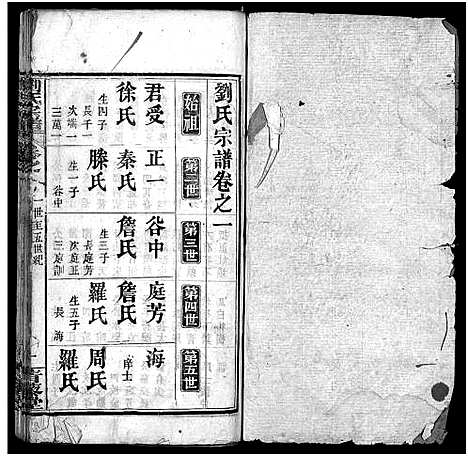 劉氏宗譜卷之一
始祖
第二世
第三世
第四世
第五世
君受
徐氏
生四子
長千一
次端一
三萬一
正一
秦氏
滕氏
生一子
谷中
谷中
詹氏
生三子
長庭芳
次庭正
三庭訓
庭芳
詹氏
羅氏
生五子
長海
海
庠士
周氏
羅氏
劉氏宗譜